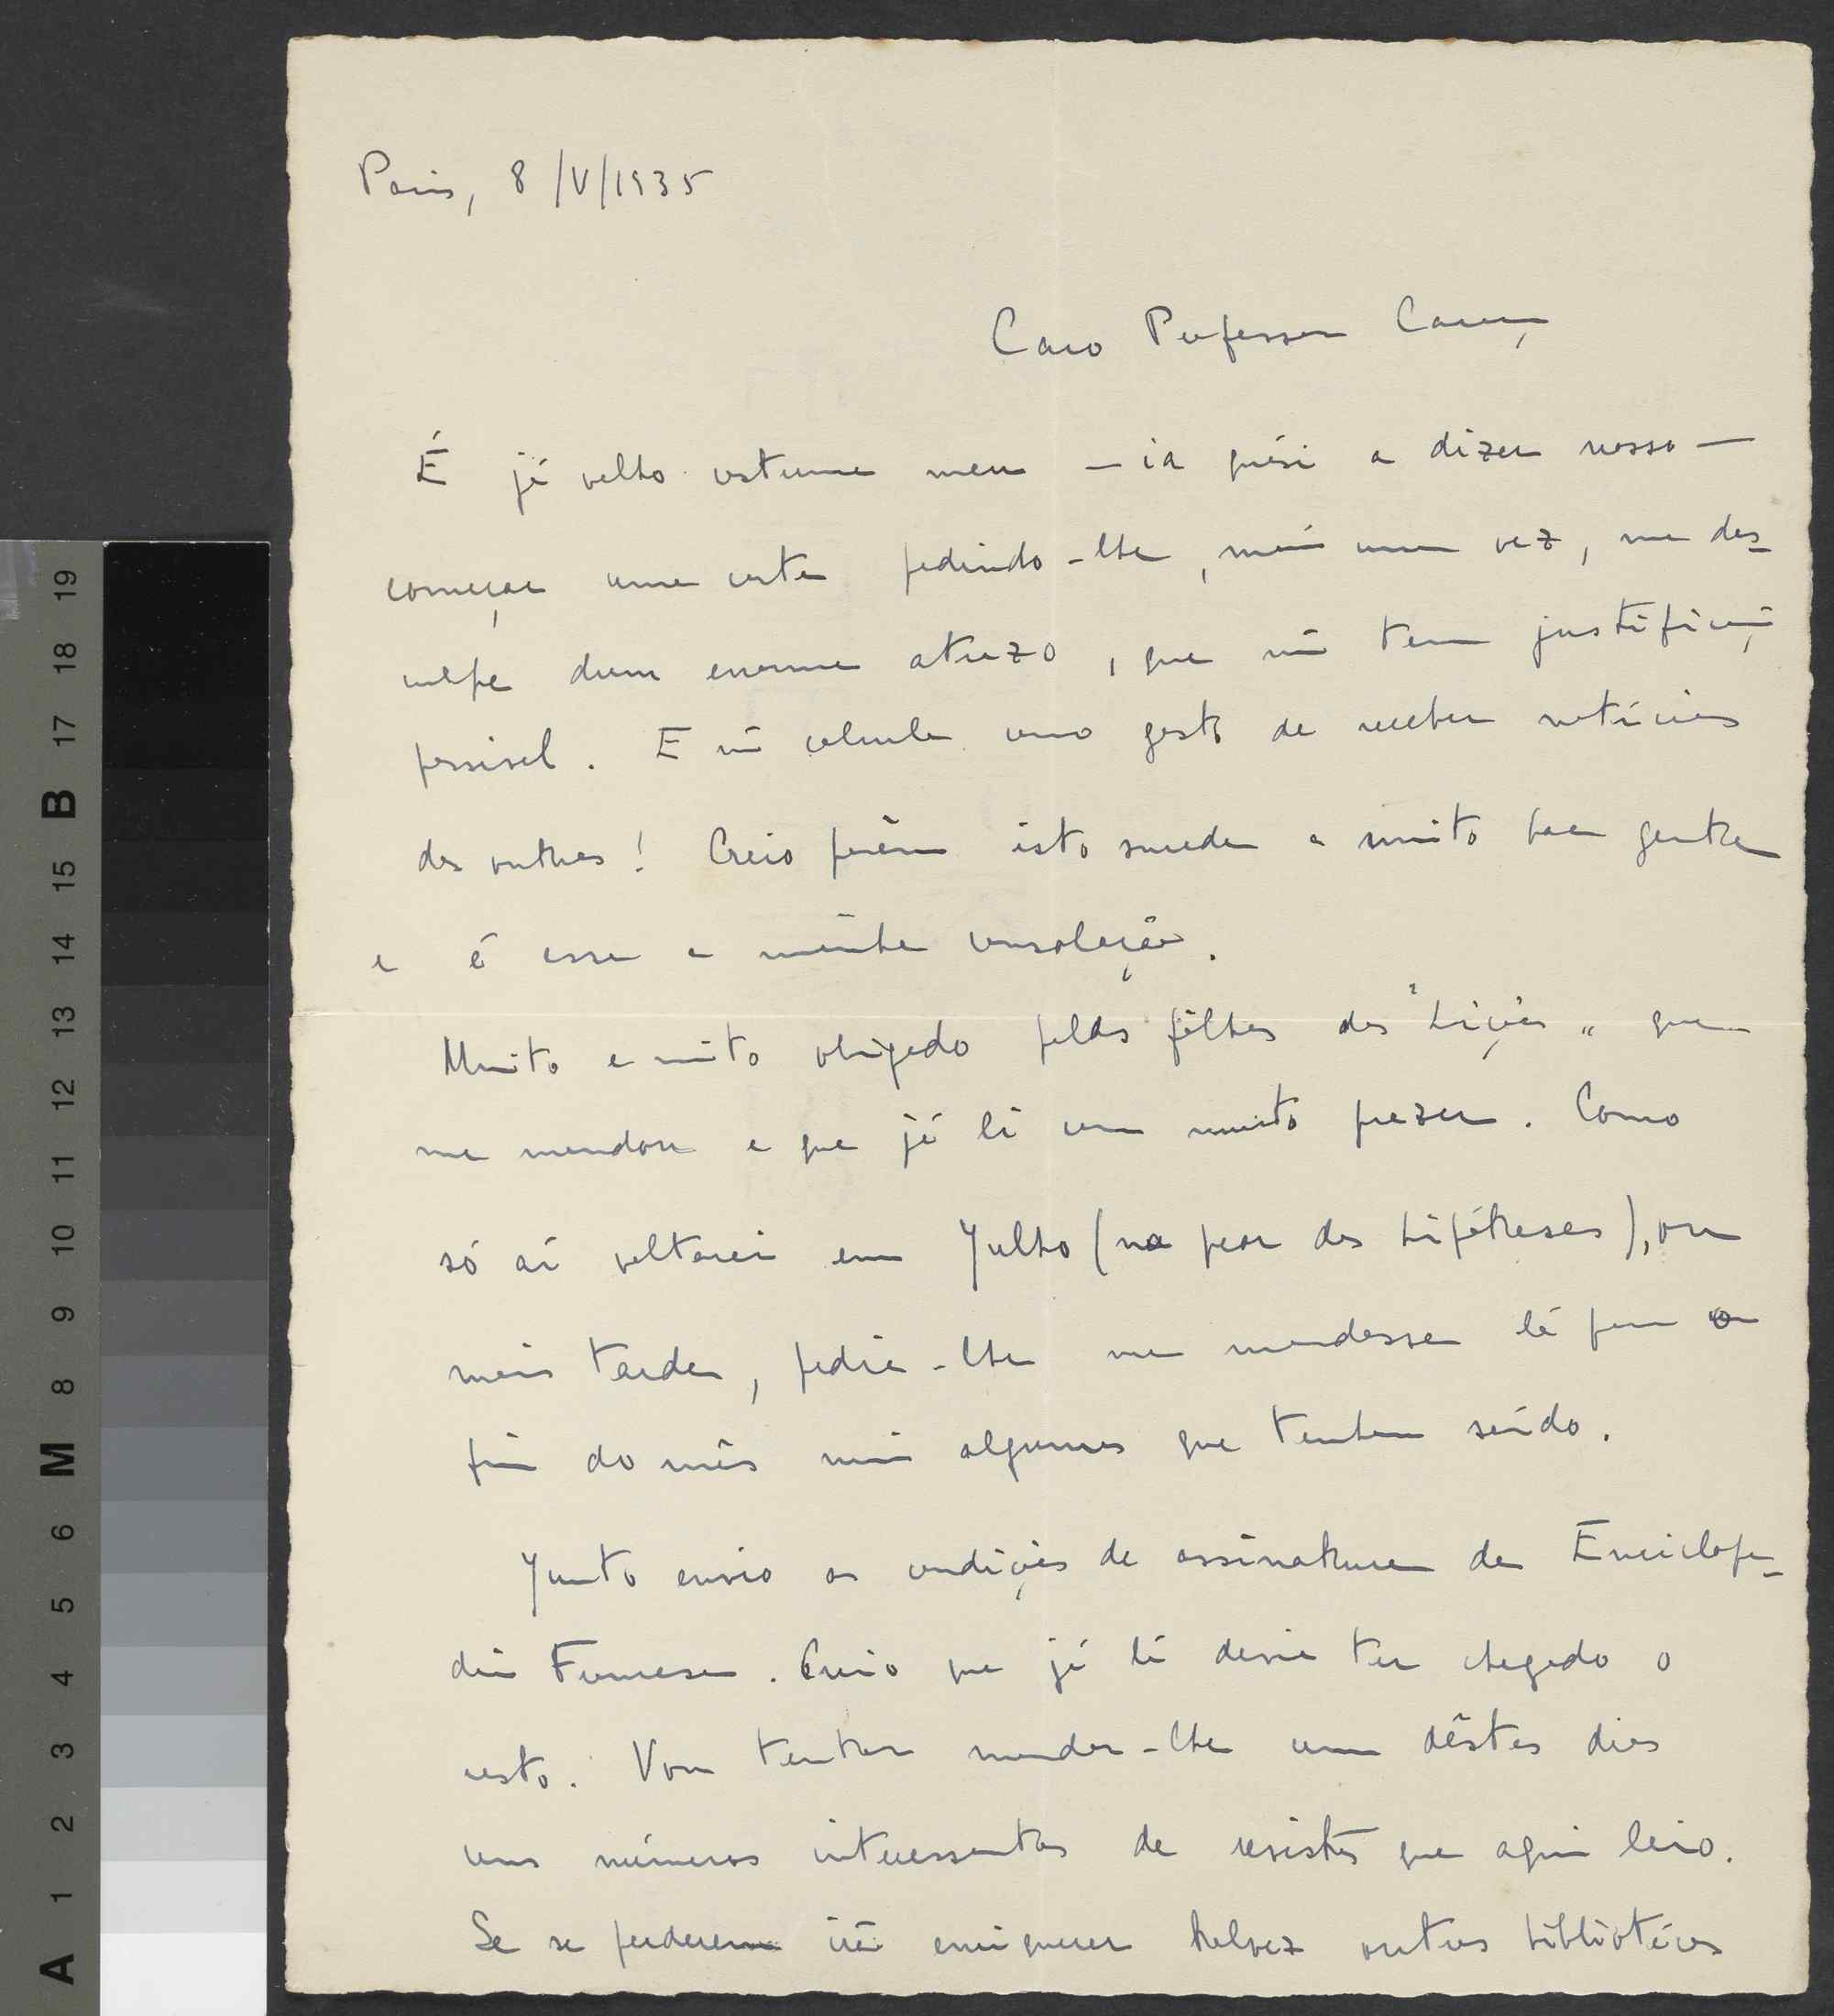 Paris, 8/V/1935
Caro Professor Caraça
É já velho costume meu — ia quási a dizer nosso —
começar uma carta pedindo-lhe, mais uma vez, me des-
culpe dum enorme atrazo, que não tem justificação
possivel. E não calcula como gosto de receber notícias
dos outros! Creio porêm isto suceder a muito boa gente
e é essa a minha consolação.
Muito e muito obrigado pelas fôlhas das "Lições" que
me mandou e que já li com muito prazer. Como
só aí voltarei em Julho (na peor das hipóteses), ou
mais tarde, pedia-lhe me mandasse lá para o
fim do mês mais algumas que tenham saído.
Junto envio as condições de assinatura da Enciclopé-
dia Francesa. Creio que já lá devia ter chegado o
resto. Vou tentar mandar-lhe um dêstes dias
uns números interessantes de revistas que aqui leio.
Se se perderem irão enriquecer talvez outras bibliotécas
A 1 2 3 4 5 6 M 8 9 10 11 12 13 14 15 B 17 18 19